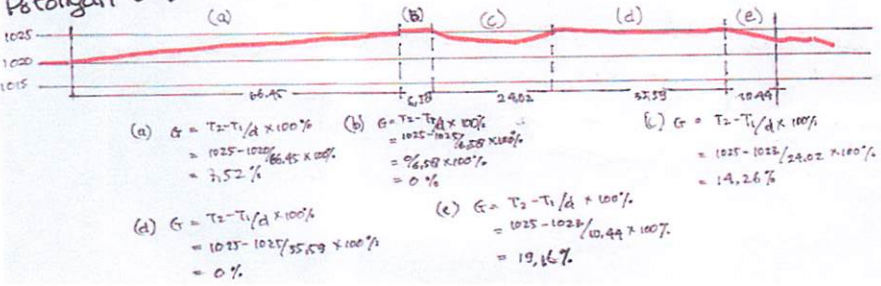 Potongan
(a) (b) (c) (d) (e)
1025
1020
1015
66.45 6,58 24,02 35,59 10.44
(a) G = T2-T1/d x 100%
= 1025-1020/66.45 x 100%
= 7,52 %
(b) G = T2-T1/d x 100%
= 1025-1025/6,58 x 100%
= 0/6,58 x 100%
= 0 %
(c) G = T2-T1/d x 100%
= 1025-1023/24.02 x 100%
= 14,26 %
(d) G = T2-T1/d x 100%
= 1025-1025/35,59 x 100%
= 0 %
(e) G = T2-T1/d x 100%
= 1025-1023/10,44 x 100%
= 19,16 %